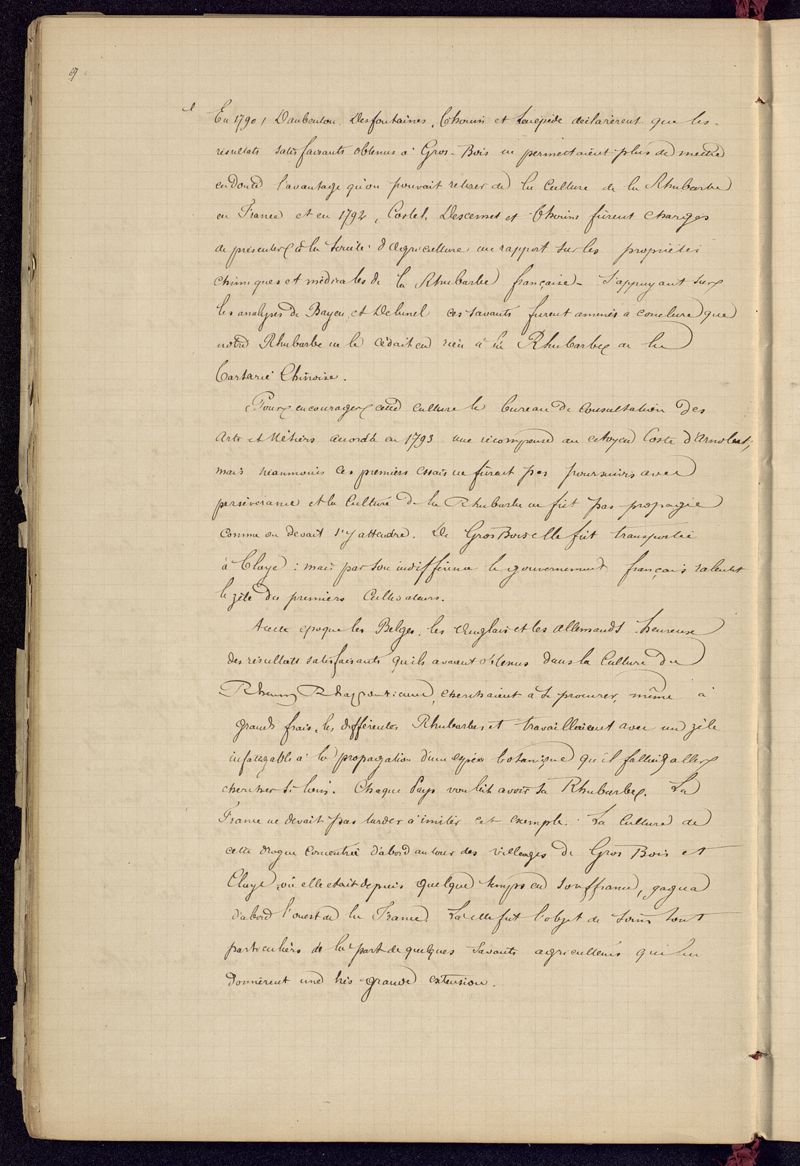 En 1790, Daubenton, Desfontaines, Thouin et Lacépède déclarèrent que les
résultats satisfaisants obtenus à Gros-Bois ne permettaient plus de mettre
en doute l'avantage qu'on pouvait retirer de la culture de la Rhubarbe
en France et en 1792, Costel, Descemet et Thouin fûrent chargés
de présenter à la Société d'Agriculture un rapport sur les propriétés
chimiques et médicales de la Rhubarbe française. S'appuyant sur
les analyses de Bayen et Delunel ces savants furent amenés à conclure que
notre Rhubarbe ne le cédait en rien à la Rhubarbe de la
Tartarie Chinoise.
Pour encourager cette culture le bureau de Consultation des
Arts et Métiers accorda en 1793 une récompense au citoyen Coste d'Arnobat;
mais néanmoins ces premiers essais ne fûrent pas poursuivis avec
persévérance et la culture de la Rhubarbe ne fût pas propagée
comme on devait s'y attendre. De Gros Bois elle fût transportée
à Claye : mais par son indifférence le gouvernement français ralentit
le zèle des premiers cultivateurs.
A cette époque les Belges, les Anglais et les Allemands heureux
des résultats satisfaisants qu'ils avaient obtenus dans la culture du
Rheum Rhaponticum, cherchaient à se procurer, même à
grands frais, les différentes Rhubarbes et travaillaient avec un zèle
infatigable à la propagation d'une espèce botanique qu'il fallait aller
chercher si loin. Chaque Pays voulait avoir sa Rhubarbe. La
France ne devait pas tarder à imiter cet exemple. La culture de
cette drogue concentrée d'abord autour des villages de Gros Bois et
Claye, où elle était depuis quelque temps en souffrance, gagna
d'abord l'ouest de la France. Là elle fut l'objet de soins tout
particuliers de la part de quelques savants agriculteurs qui lui
donnèrent une très grande extension.